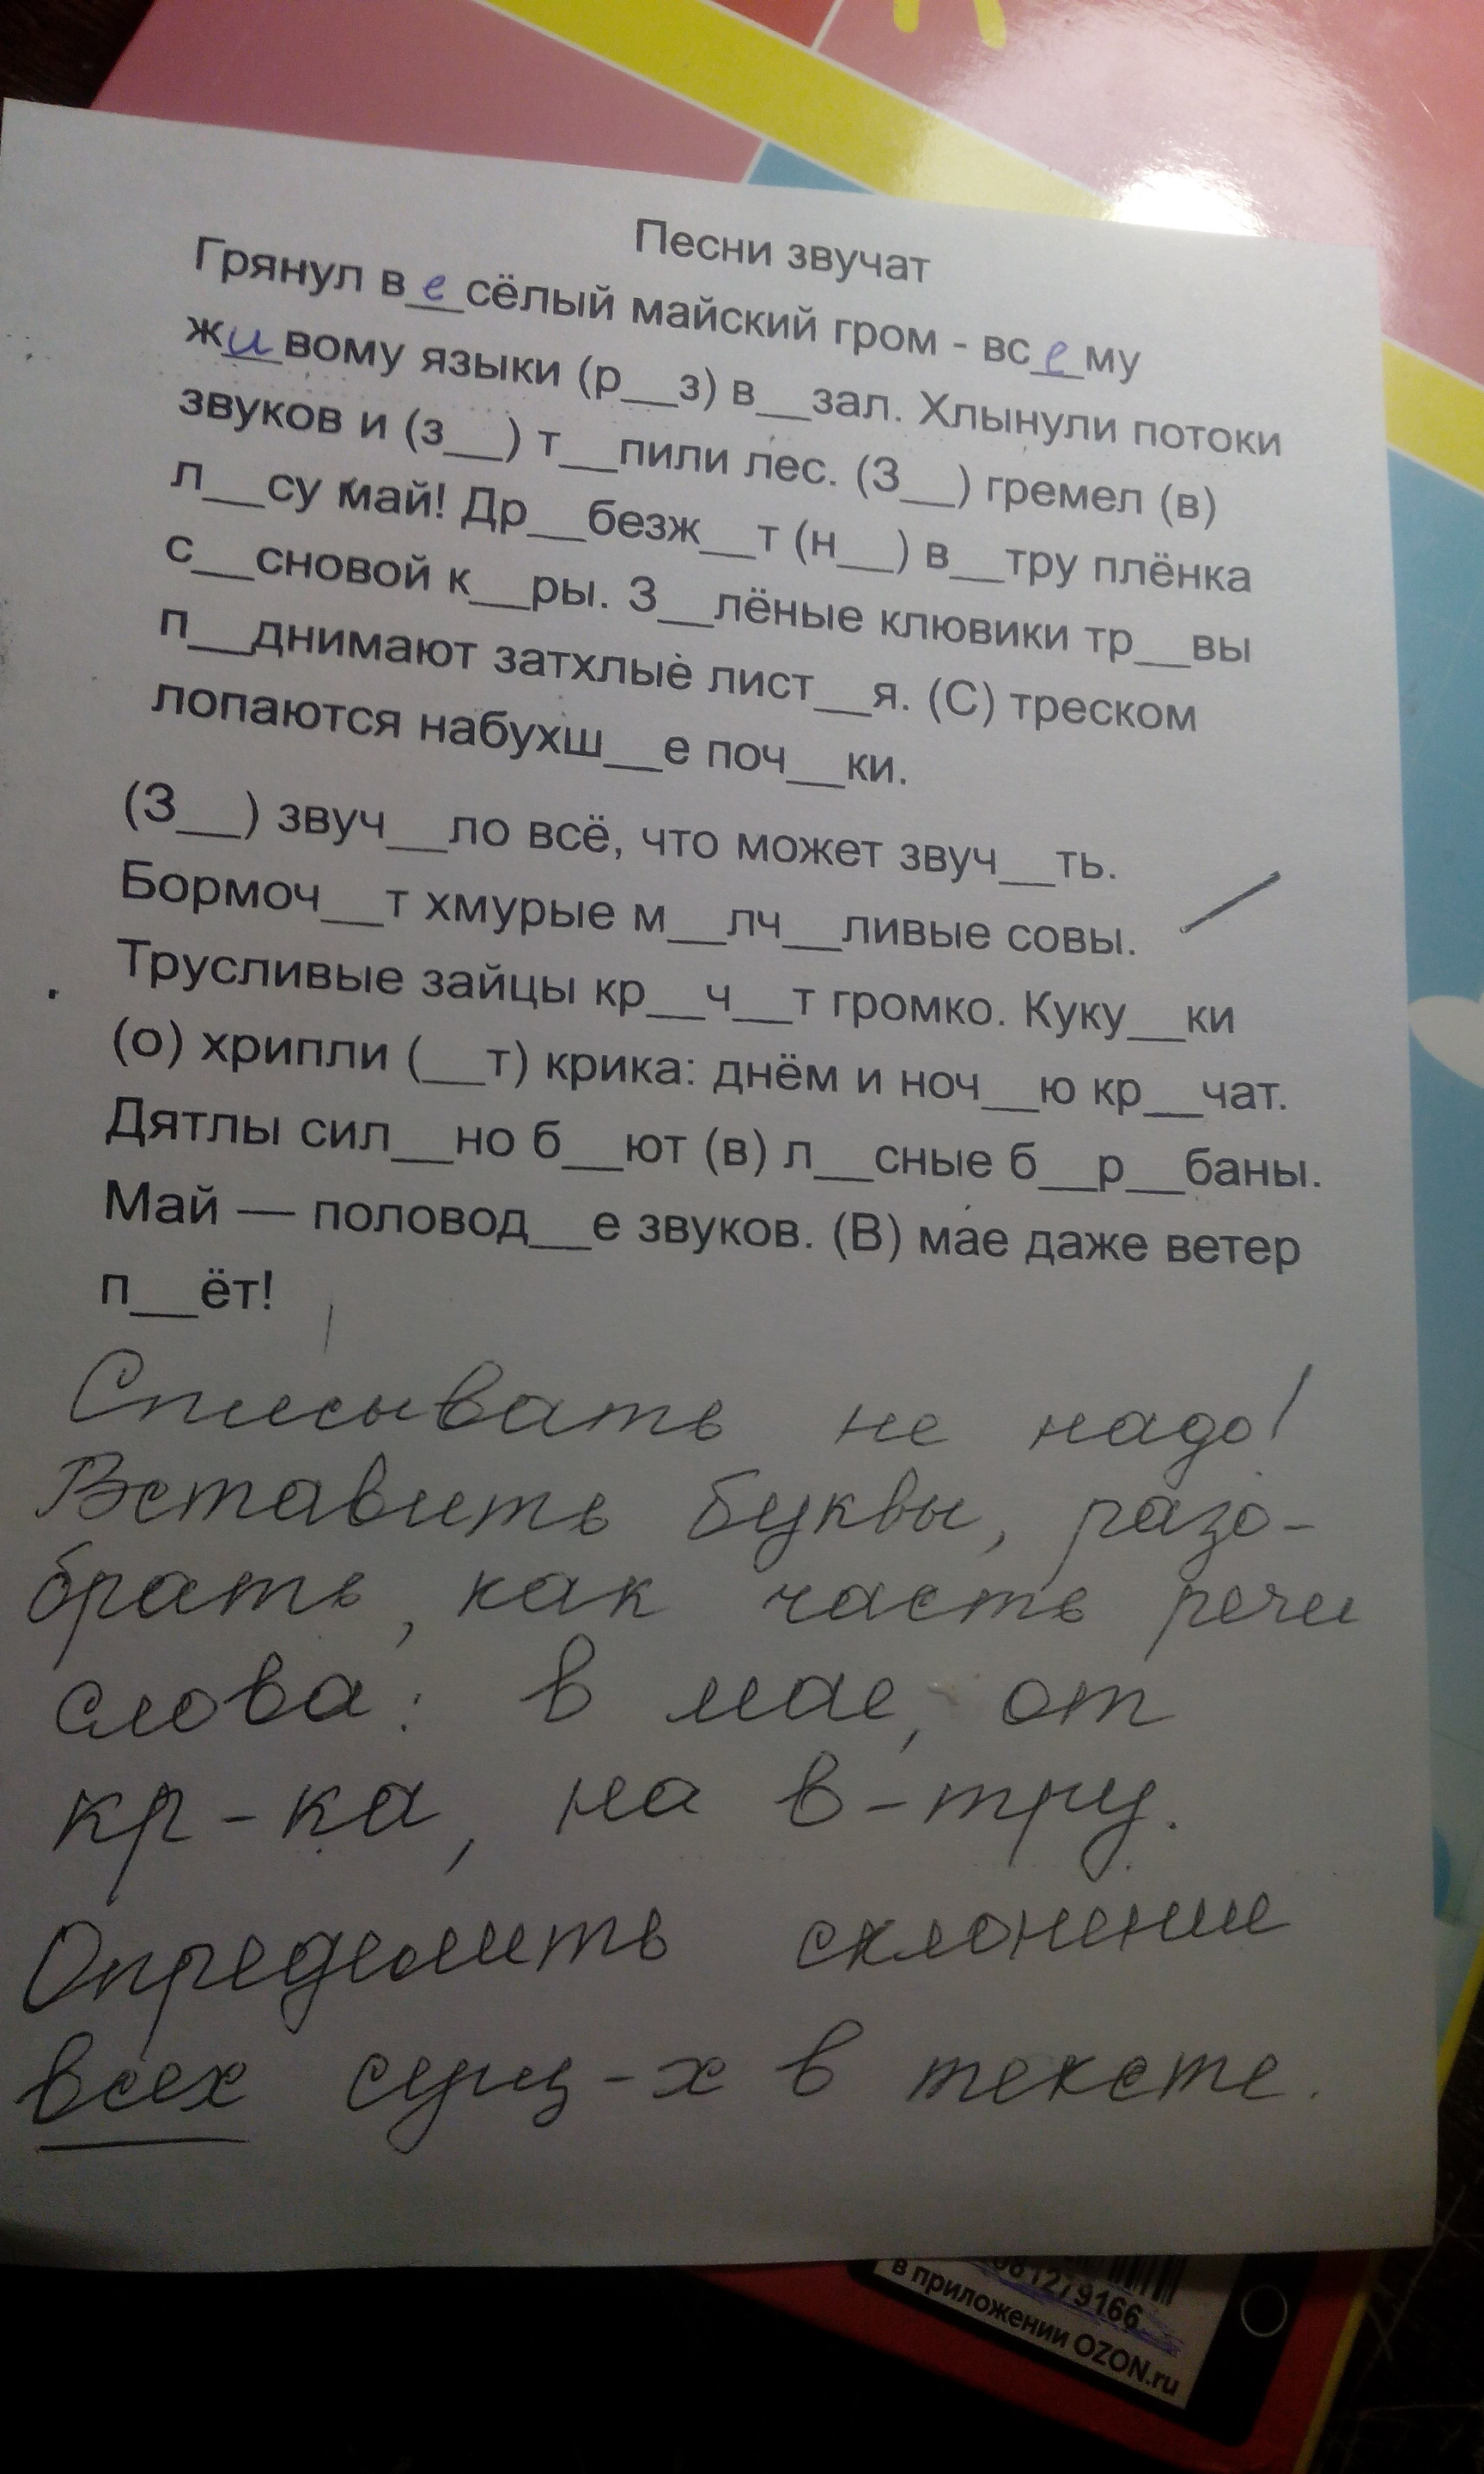 Песни звучат
Грянул в_е_сёлый майский гром - вс_е_му
ж_и_вому языки (р__з) в__зал. Хлынули потоки
звуков и (з__) т__пили лес. (З__) гремел (в)
л__су май! Др__безж__т (н__) в__тру плёнка
с__сновой к__ры. З__лёные клювики тр__вы
п__днимают затхлые лист__я. (С) треском
лопаются набухш__е поч__ки.
(З__) звуч__ло всё, что может звуч__ть.
Бормоч__т хмурые м__лч__ливые совы.
Трусливые зайцы кр__ч__т громко. Куку__ки
(о) хрипли (__т) крика: днём и ноч__ю кр__чат.
Дятлы сил__но б__ют (в) л__сные б__р__баны.
Май — половод__е звуков. (В) мае даже ветер
п__ёт!
Списывать не надо!
Вставить буквы, разо-
брать, как часть речи
слова: в мае, от
кр-ка, на в-тру.
Определить склонение
всех сущ-х в тексте.
081279166
в приложении OZON.ru